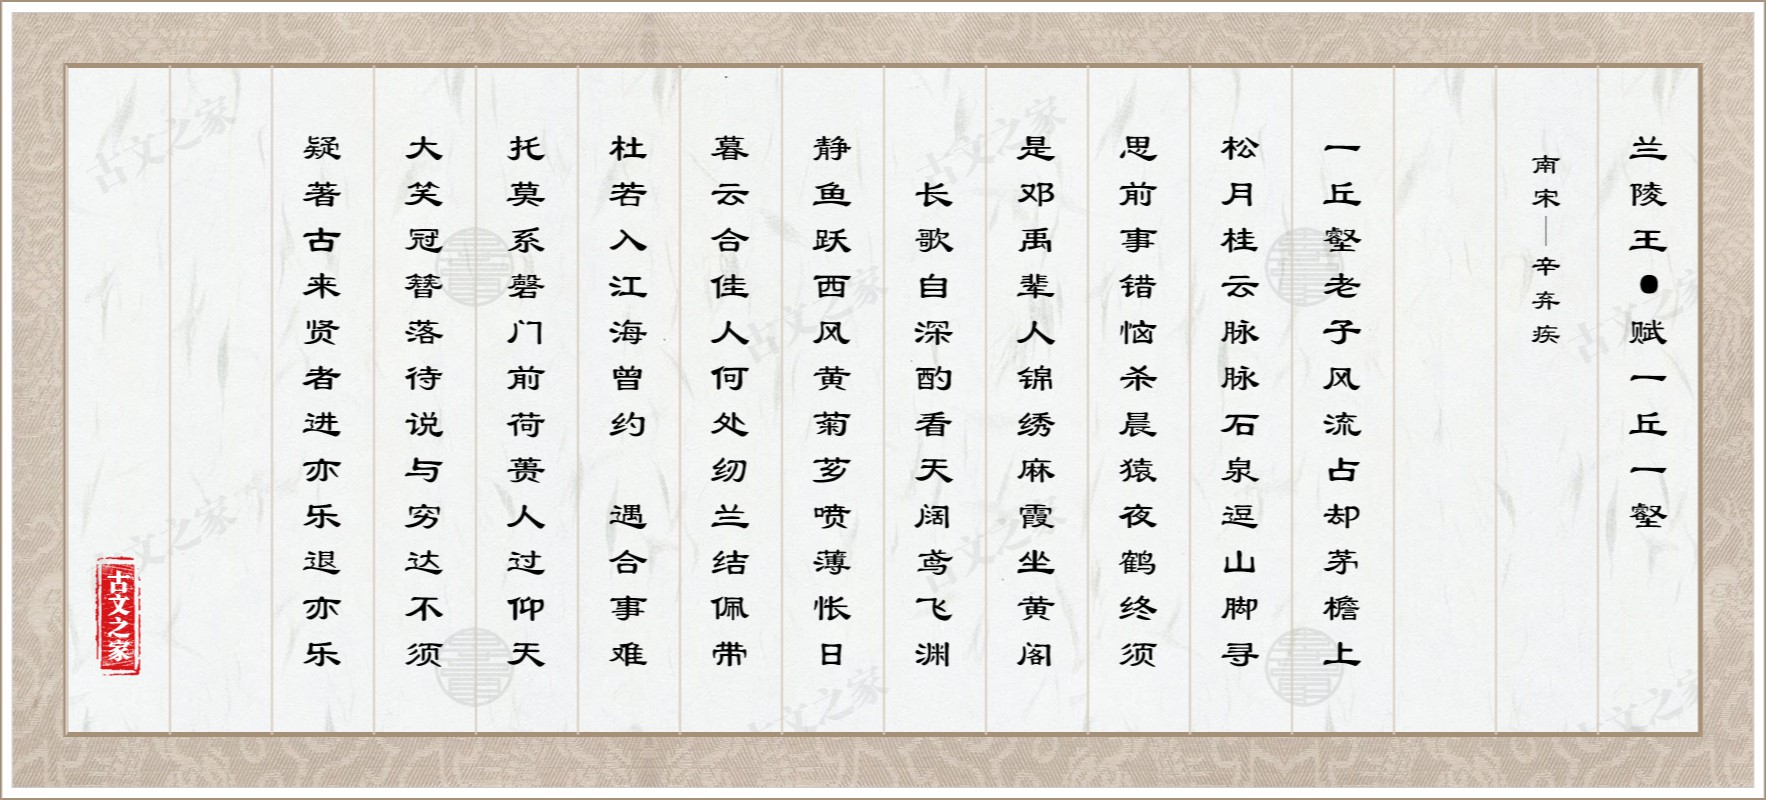 兰陵王●赋一丘一壑
南宋—辛弃疾
一丘壑老子风流占却茅檐上
松月桂云脉脉石泉逗山脚寻
思前事错恼杀晨猿夜鹤终须
是邓禹辈人锦绣麻霞坐黄阁
长歌自深酌看天阔鸢飞渊
静鱼跃西风黄菊芗喷薄怅日
暮云合佳人何处纫兰结佩带
杜若入江海曾约 遇合事难
托莫系磬门前荷蒉人过仰天
大笑冠簪落待说与穷达不须
疑著古来贤者进亦乐退亦乐
古文之家
古文之家
古文之家
古文之家
古文之家
古文之家
古文之家
古文之家
古文之家